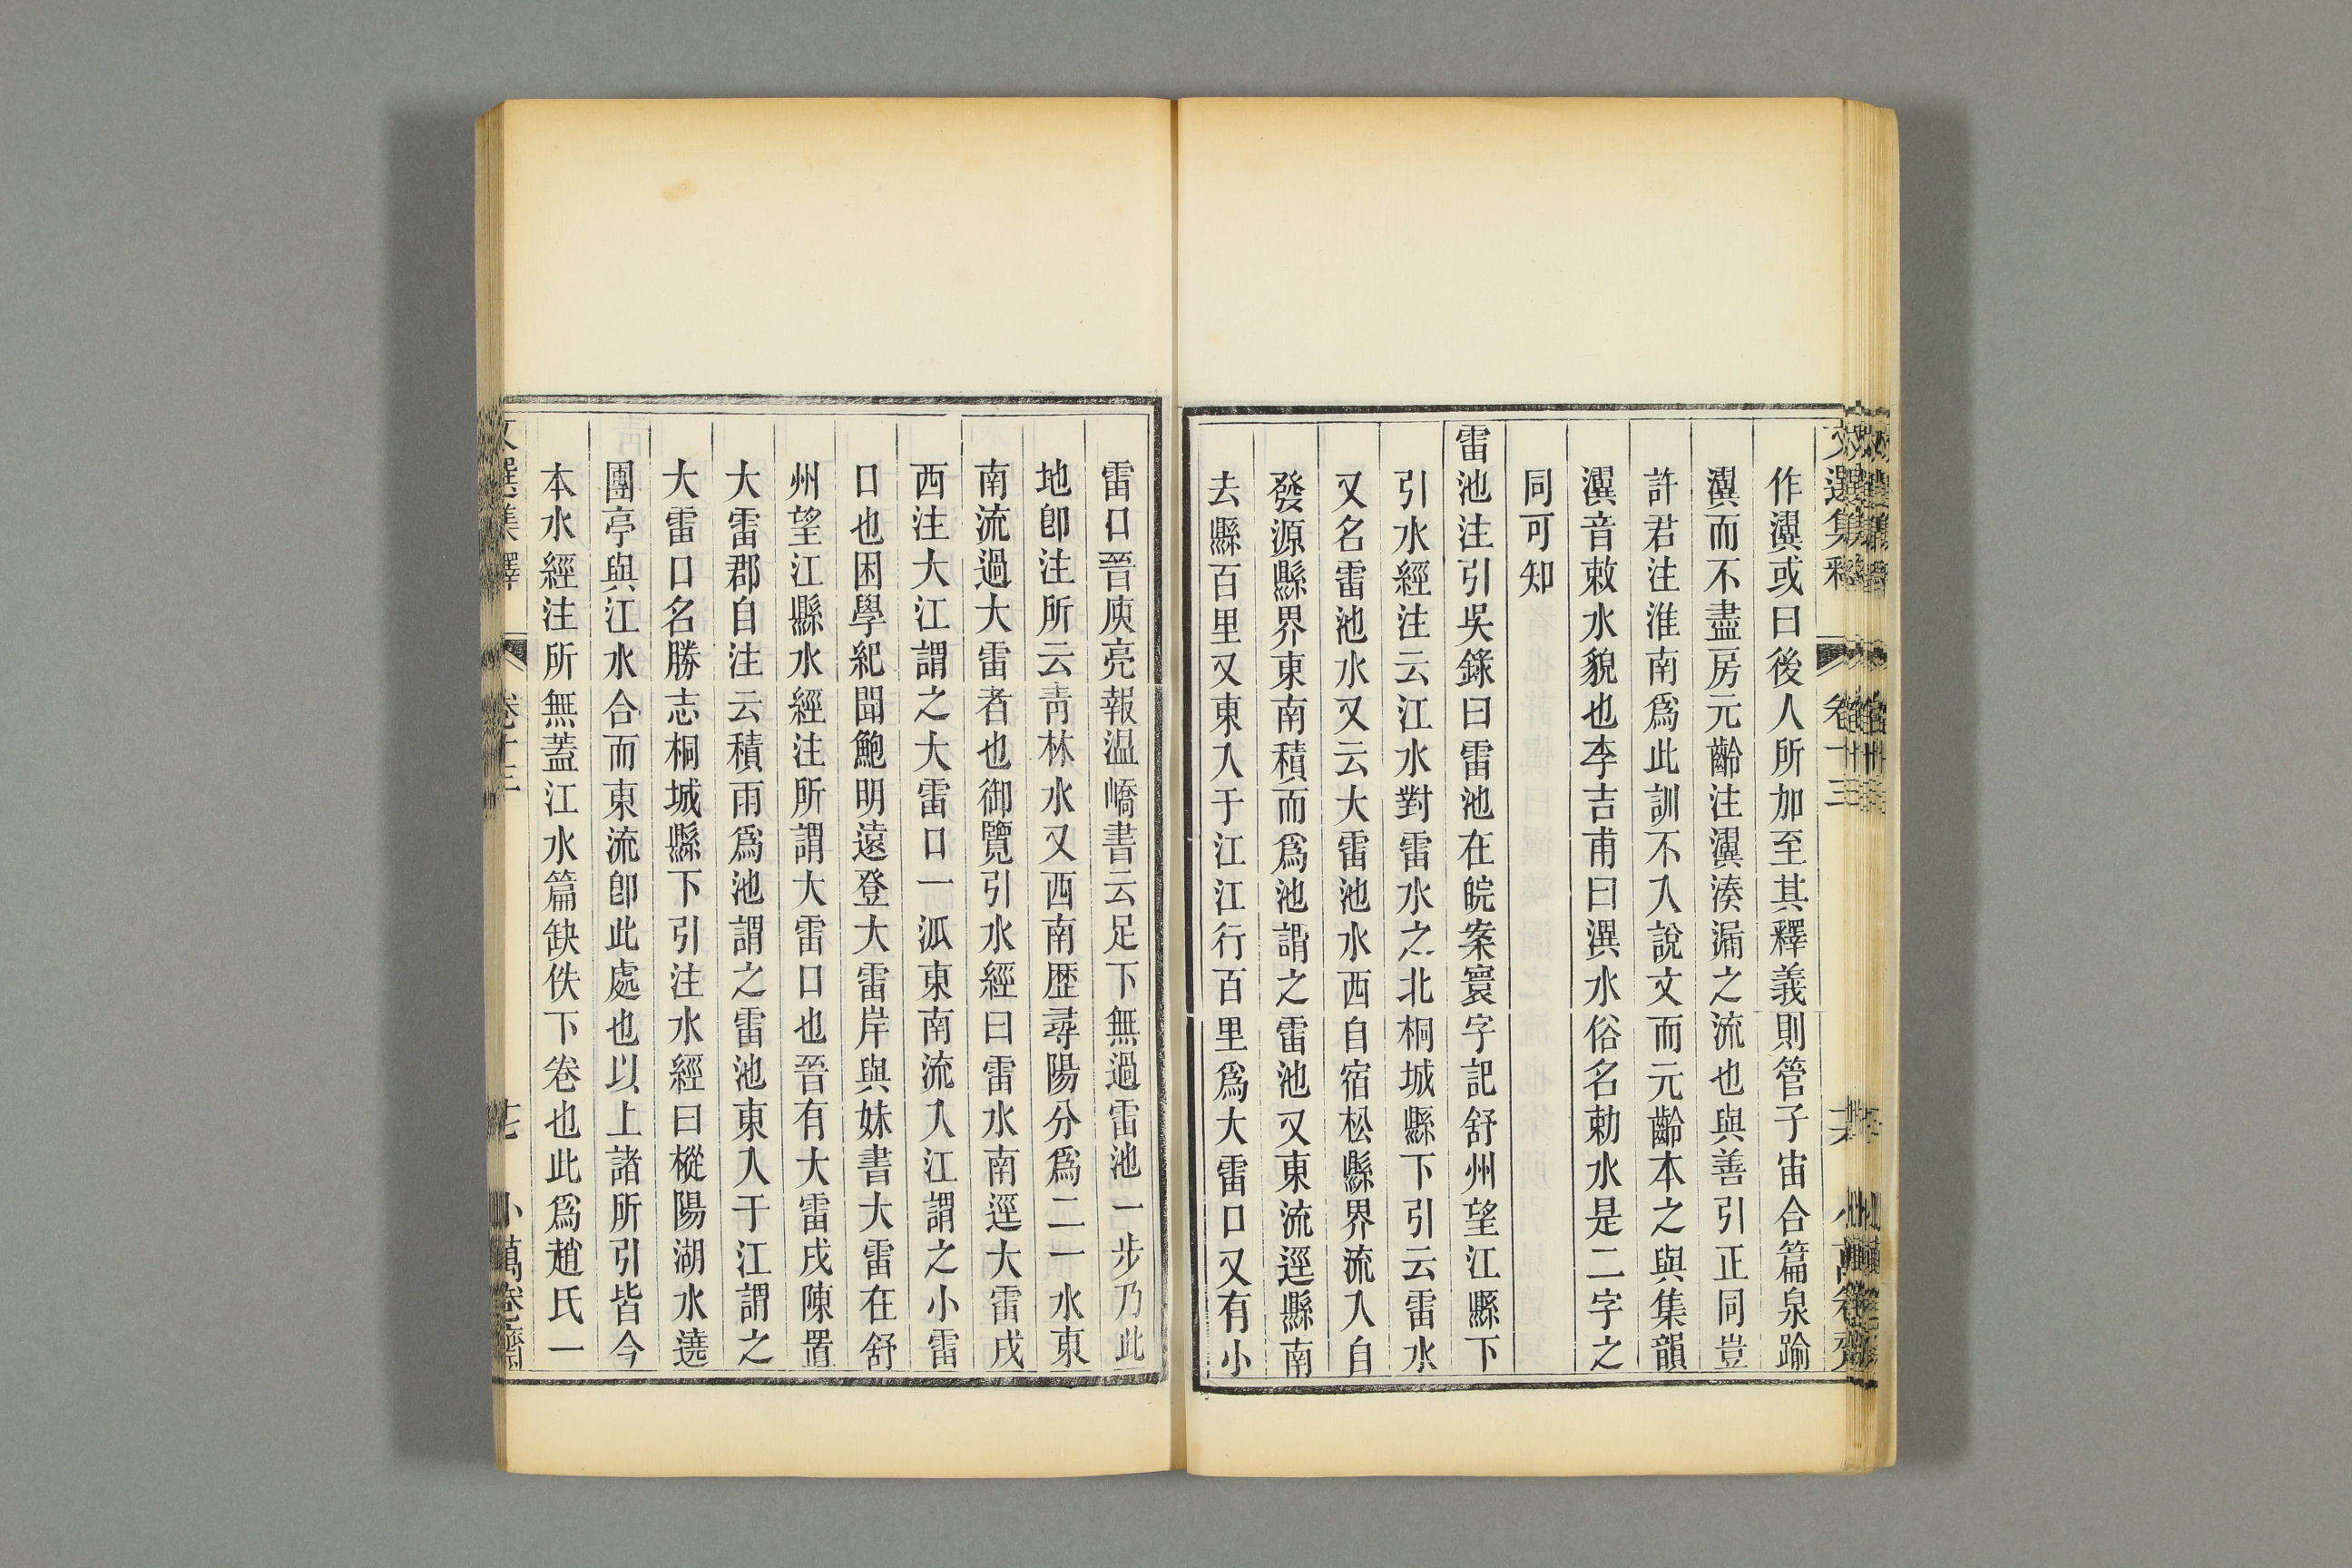 作瀷或曰後人所加至其釋義則管子宙合篇泉踰
瀷而不盡房元齡注瀷湊漏之流也與善引正同豈
許君注淮南爲此訓不入說文而元齡本之與集韻
瀷音敕水貌也李吉甫曰潩水俗名勅水是二字之
同可知
雷池注引吳錄曰雷池在皖案寰字記舒州望江縣下
引水經注云江水對雷水之北桐城縣下引云雷水
又名雷池水又云大雷池水西自宿松縣界流入自
發源縣界東南積而爲池謂之雷池又東流逕縣南
去縣百里又東入于江江行百里爲大雷口又有小
雷口晉庾亮報温嶠書云足下無過雷池一步乃此
地卽注所云青林水又西南歷尋陽分爲二一水東
南流過大雷者也御覽引水經曰雷水南逕大雷戌
西注大江謂之大雷口一派東南流入江謂之小雷
口也困學紀聞鮑明遠登大雷岸與妹書大雷在舒
州望江縣水經注所謂大雷口也晉有大雷戌陳置
大雷郡自注云積雨爲池謂之雷池東入于江謂之
大雷口名勝志桐城縣下引注水經曰樅陽湖水遶
團亭與江水合而東流卽此處也以上諸所引皆今
本水經注所無蓋江水篇缺佚下卷也此爲趙氏一
文選集釋 卷十三 七 小萬卷齋